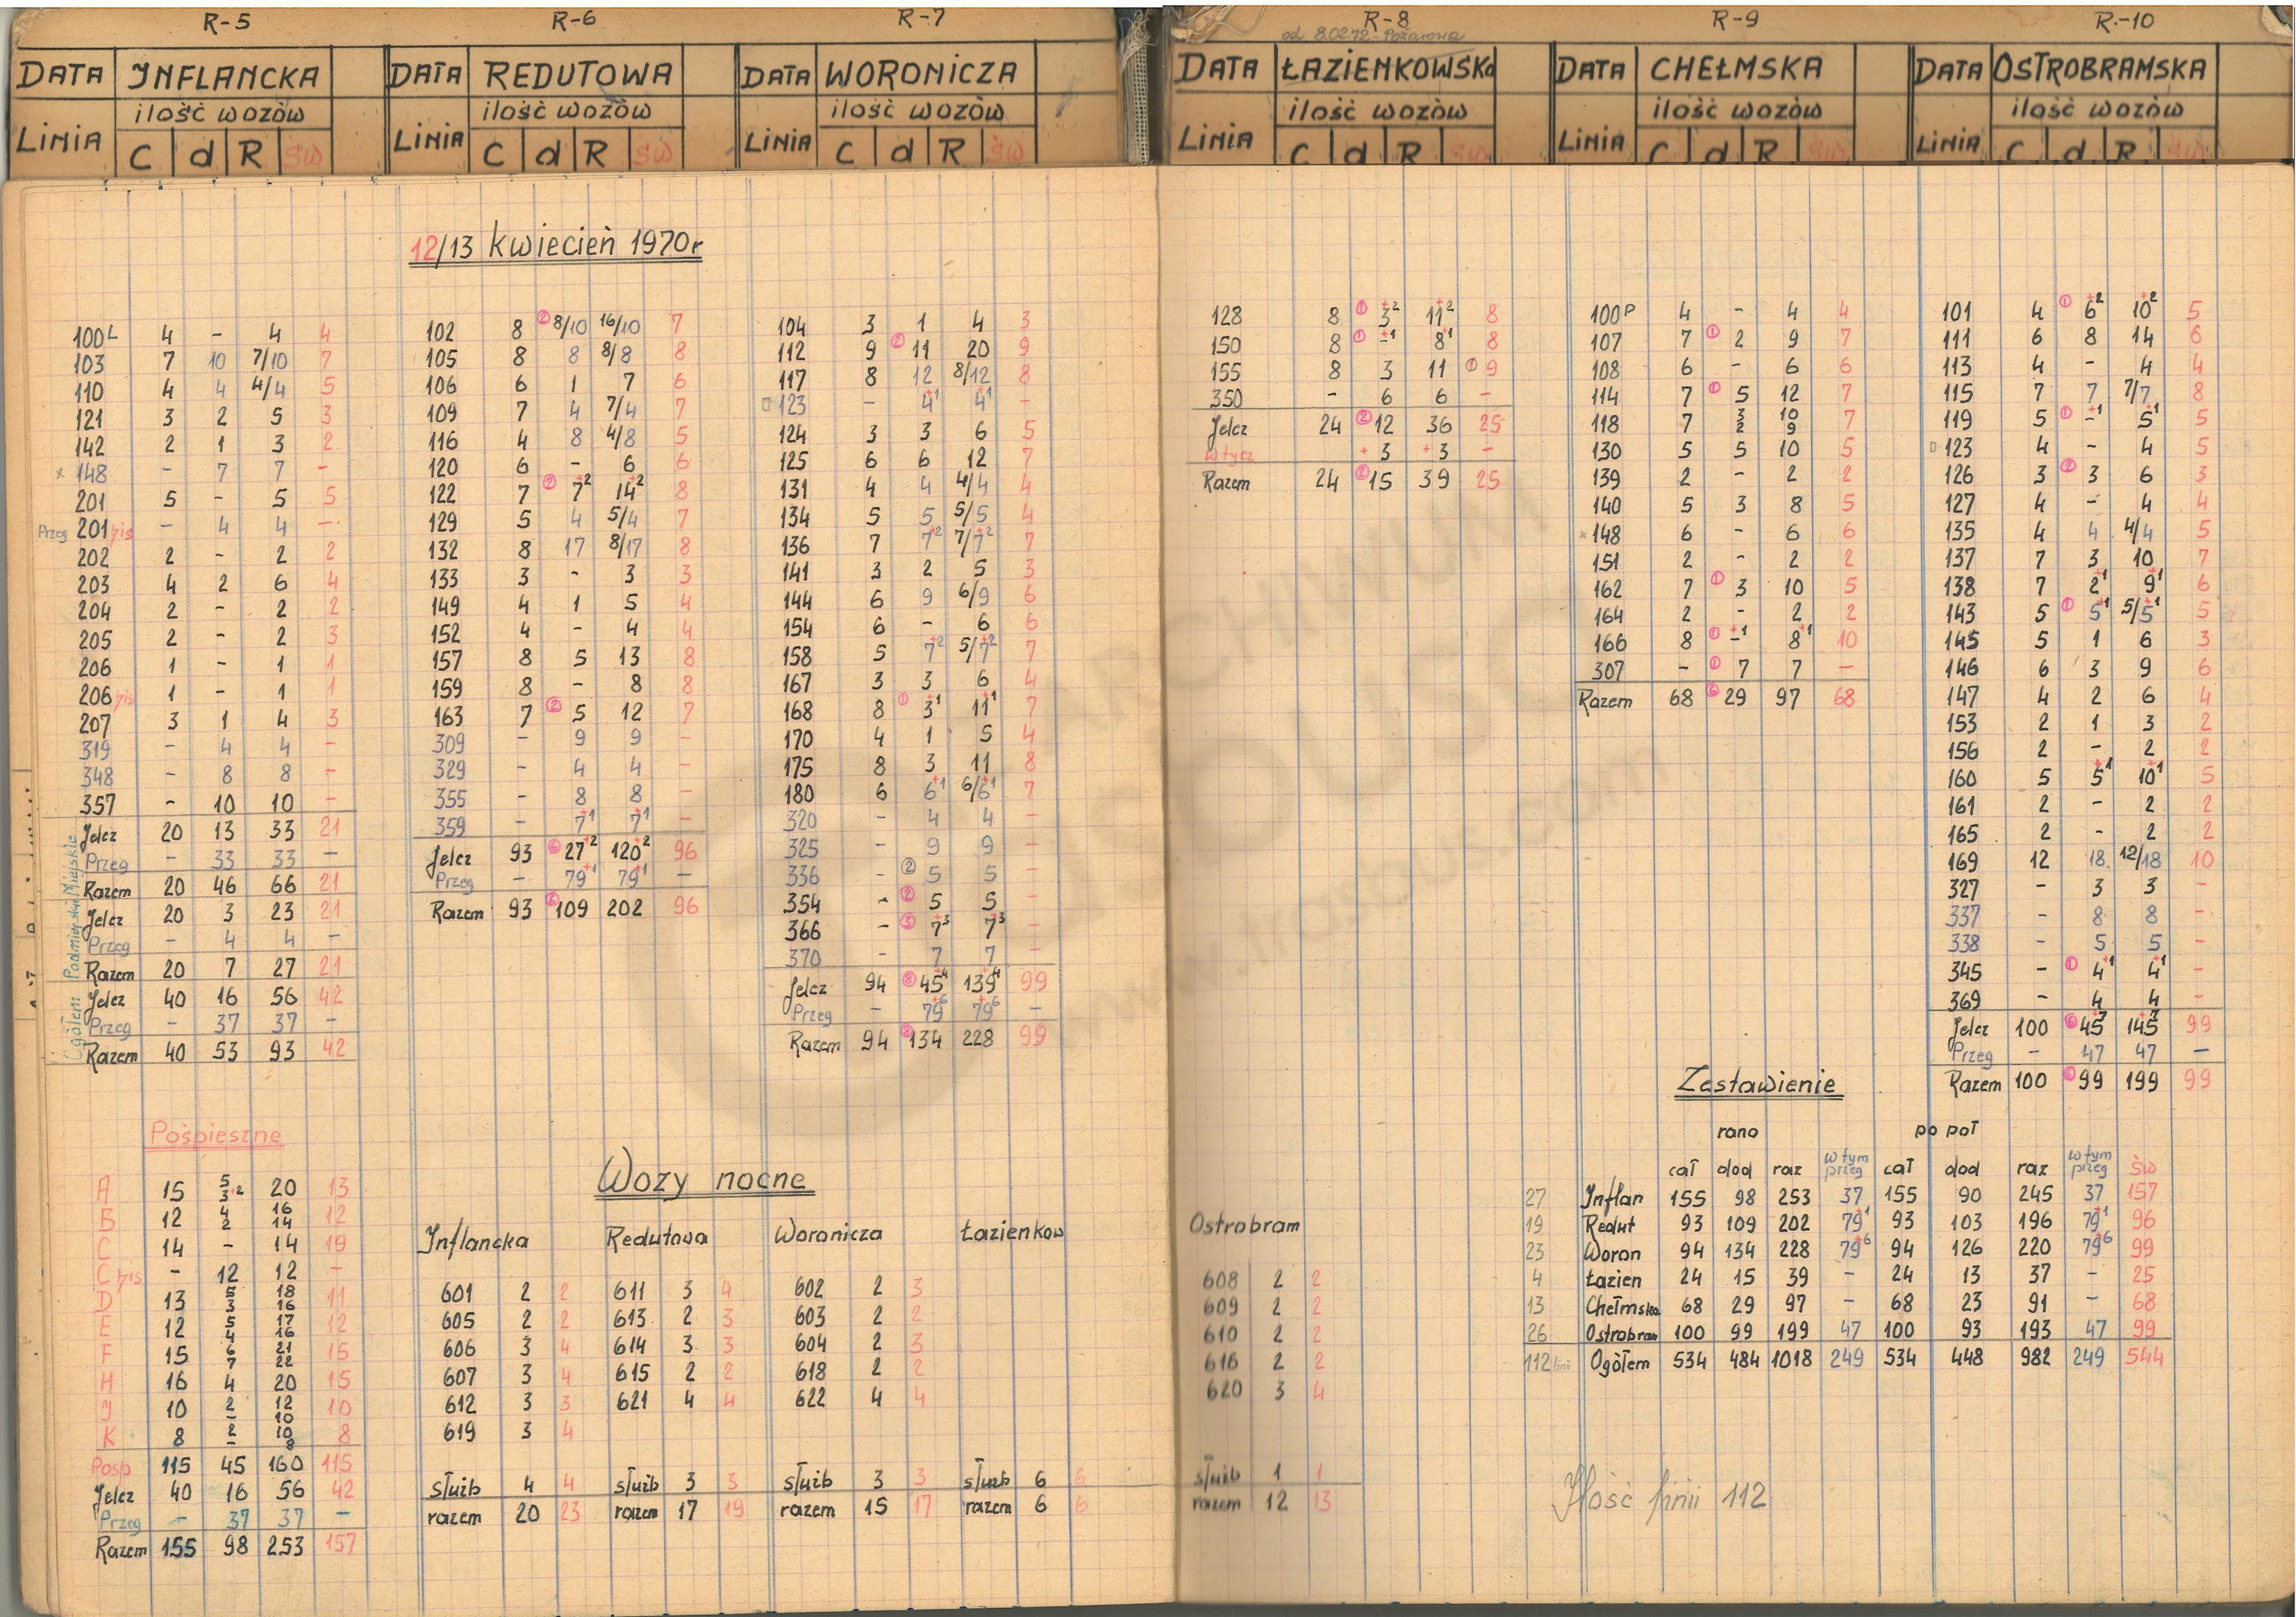 R-5
DATA INFLANCKA
LINIA ilość wozów
C d R św
R-6
DATA REDUTOWA
LINIA ilość wozów
C d R św
R-7
DATA WORONICZA
LINIA ilość wozów
C d R św
R-8
od 8.02.72 - Pożarowa
DATA ŁAZIENKOWSKa
LINIA ilość wozów
C d R św
R-9
DATA CHEŁMSKA
LINIA ilość wozów
C d R św
R.-10
DATA OSTROBRAMSKA
LINIA ilość wozów
C d R św
12/13 kwiecień 1970r
100L 4 - 4 4
103 7 10 7/10 7
110 4 4 4/4 5
121 3 2 5 3
142 2 1 3 2
x 148 - 7 7 -
201 5 - 5 5
Przeg 201 bis - 4 4 -
202 2 - 2 2
203 4 2 6 4
204 2 - 2 2
205 2 - 2 3
206 1 - 1 1
206 bis 1 - 1 1
207 3 1 4 3
319 - 4 4 -
348 - 8 8 -
357 - 10 10 -
Miejskie
Jelcz 20 13 33 21
Przeg - 33 33 -
Razem 20 46 66 21
Podmiejskie
Jelcz 20 3 23 21
Przeg - 4 4 -
Razem 20 7 27 21
Ogółem
Jelcz 40 16 56 42
Przeg - 37 37 -
Razem 40 53 93 42
102 8 ② 8/10 16/10 7
105 8 8 8/8 8
106 6 1 7 6
109 7 4 7/4 7
116 4 8 4/8 5
120 6 - 6 6
122 7 ② 7+2 14+2 8
129 5 4 5/4 7
132 8 17 8/17 8
133 3 - 3 3
149 4 1 5 4
152 4 - 4 4
157 8 5 13 8
159 8 - 8 8
163 7 ② 5 12 7
309 - 9 9 -
329 - 4 4 -
355 - 8 8 -
359 - 7+1 7+1 -
Jelcz 93 ⑥ 27+2 120+2 96
Przeg - 79+1 79+1 -
Razem 93 ⑥ 109 202 96
104 3 1 4 3
112 9 ② 11 20 9
117 8 12 8/12 8
□ 123 - 4+1 4+1 -
124 3 3 6 5
125 6 6 12 7
131 4 4 4/4 4
134 5 5 5/5 4
136 7 7+2 7/7+2 7
141 3 2 5 3
144 6 9 6/9 6
154 6 - 6 6
158 5 7+2 5/7+2 7
167 3 3 6 4
168 8 ① 3+1 11+1 7
170 4 1 5 4
175 8 3 11 8
180 6 6+1 6/6+1 7
320 - 4 4 -
325 - 9 9 -
336 - ② 5 5 -
354 - ② 5 5 -
366 - ③ 7+3 7+3 -
370 - 7 7 -
Jelcz 94 ⑧ 45+4 139+4 99
Przeg - 79+6 79+6 -
Razem 94 134 228 99
128 8 ① 3+2 11+2 8
150 8 ① -+1 8+1 8
155 8 3 11 ① 9
350 - 6 6 -
Jelcz 24 ② 12 36 25
wtycz +3 +3 -
Razem 24 ② 15 39 25
100P 4 - 4 4
107 7 ① 2 9 7
108 6 - 6 6
114 7 ① 5 12 7
118 7 3/2 10/9 7
130 5 5 10 5
139 2 - 2 2
140 5 3 8 5
x 148 6 - 6 6
151 2 - 2 2
162 7 ① 3 10 5
164 2 - 2 2
166 8 ① -+1 8+1 10
307 - ① 7 7 -
Razem 68 ⑥ 29 97 68
101 4 ① 6+2 10+2 5
111 6 8 14 6
113 4 - 4 4
115 7 7 7/7 8
119 5 ① -+1 5+1 5
□ 123 4 - 4 5
126 3 ② 3 6 3
127 4 - 4 4
135 4 4 4/4 5
137 7 3 10 7
138 7 2+1 9+1 6
143 5 ① 5+1 5/5+1 5
145 5 1 6 3
146 6 3 9 6
147 4 2 6 4
153 2 1 3 2
156 2 - 2 2
160 5 5+1 10+1 5
161 2 - 2 2
165 2 - 2 2
169 12 18 12/18 10
327 - 3 3 -
337 - 8 8 -
338 - 5 5 -
345 - ① 4+1 4+1 -
369 - 4 4 -
Jelcz 100 ⑥ 45+7 145+7 99
Przeg - 47 47 -
Razem 100 ⑥ 99 199 99
Pośpieszne
A 15 5/3+2 20 13
B 12 4/2 16/14 12
C 14 - 14 19
C bis - 12 12 -
D 13 5/3 18/16 11
E 12 5/4 17/16 12
F 15 6/7 21/22 15
H 16 4 20 15
J 10 2/- 12/10 10
K 8 2/- 10/8 8
Posp 115 45 160 115
Jelcz 40 16 56 42
Przeg - 37 37 -
Razem 155 98 253 157
Wozy nocne
Inflancka
601 2 2
605 2 2
606 3 4
607 3 4
612 3 3
619 3 4
służb 4 4
razem 20 23
Redutowa
611 3 4
613 2 3
614 3 3
615 2 2
621 4 4
służb 3 3
razem 17 19
Woronicza
602 2 3
603 2 2
604 2 3
618 2 2
622 4 4
służb 3 3
razem 15 17
Łazienkow
służb 6 6
razem 6 6
Ostrobram
608 2 2
609 2 2
610 2 2
616 2 2
620 3 4
służb 1 1
razem 12 13
Zestawienie
rano po poł
cał dod raz w tym przeg cał dod raz w tym przeg św
27 Inflan 155 98 253 37 155 90 245 37 157
19 Redut 93 109 202 79+1 93 103 196 79+1 96
23 Woron 94 134 228 79+6 94 126 220 79+6 99
4 Łazien 24 15 39 - 24 13 37 - 25
13 Chełmska 68 29 97 - 68 23 91 - 68
26 Ostrobram 100 99 199 47 100 93 193 47 99
112 linii Ogółem 534 484 1018 249 534 448 982 249 544
Ilość linii 112